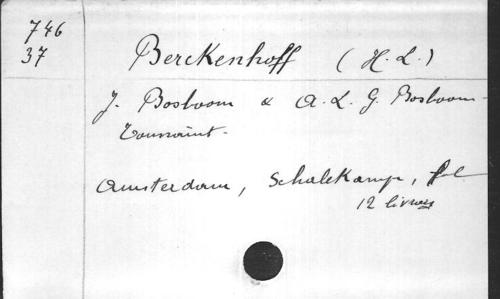 746
37
Berckenhoff (H. L.)
J. Bosboom & A. L. G. Bosboom-
Toussaint.
Amsterdam, Schalekamp, fol
12 livres